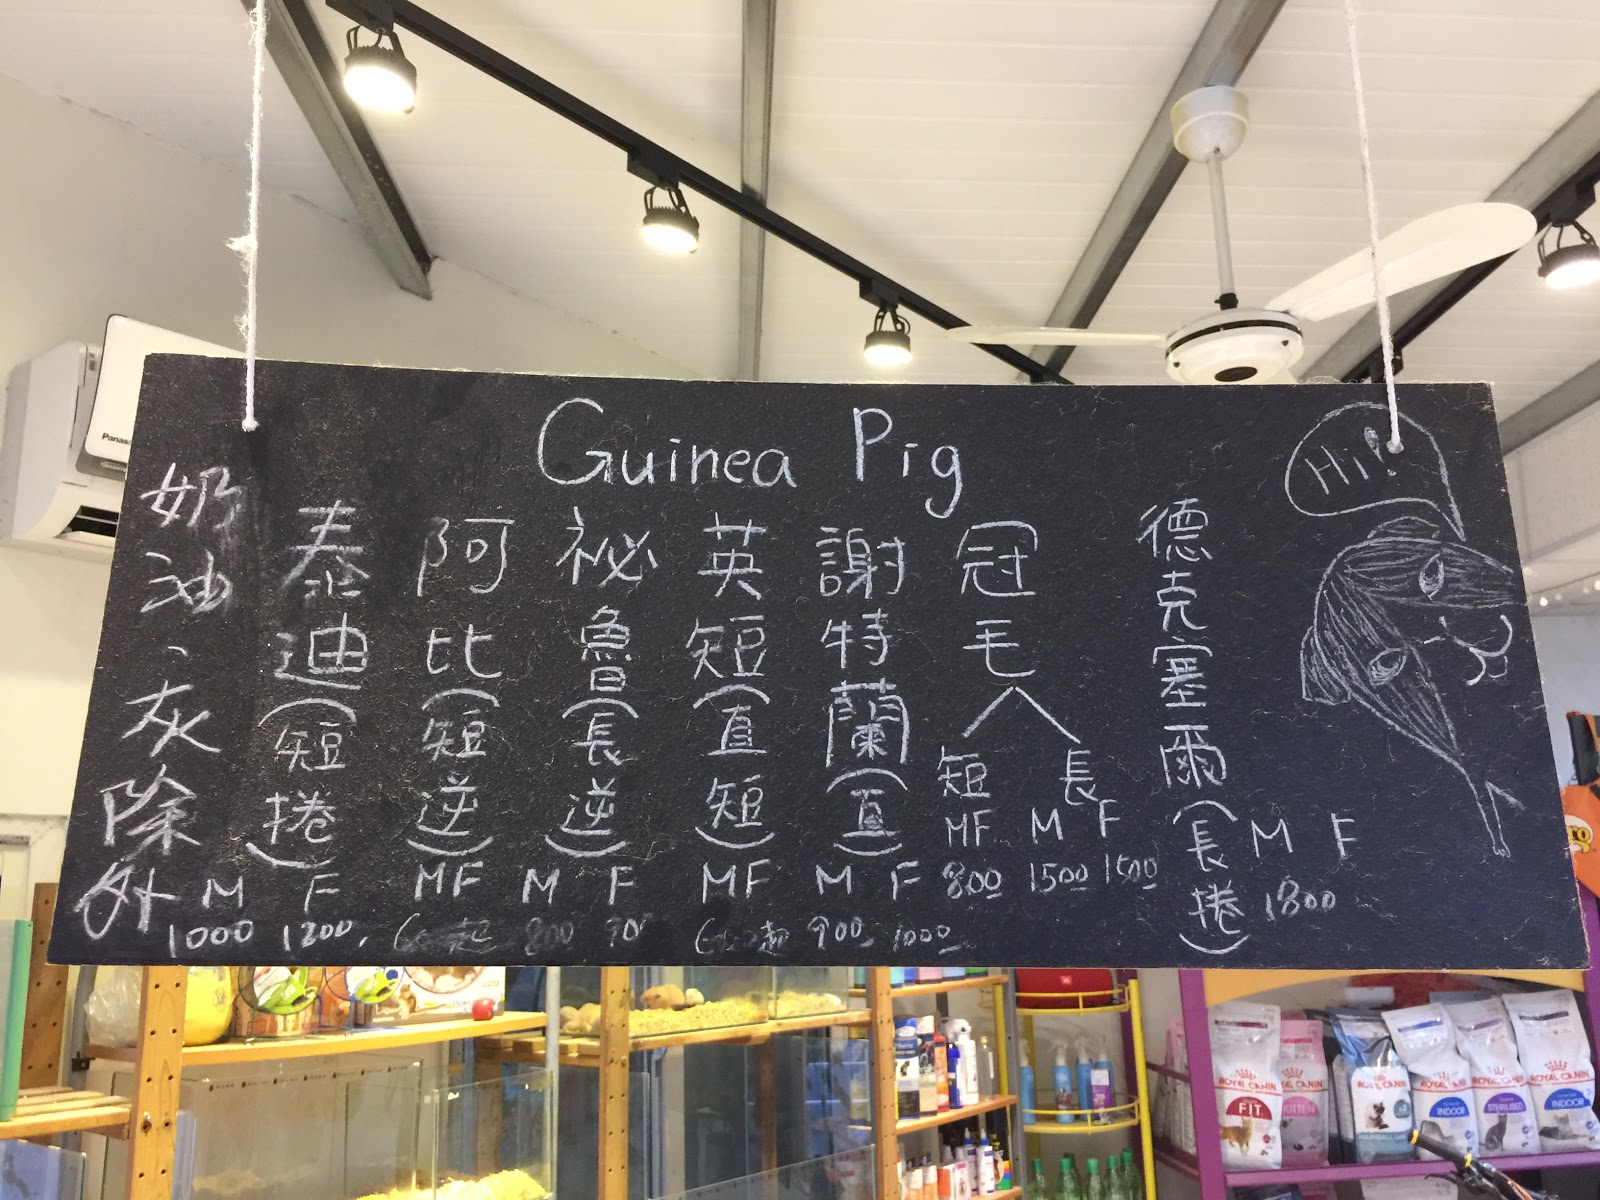 Guinea Pig
Hi!
奶油、灰除外
泰迪(短捲)
M F
1000 1200
阿比(短逆)
MF
祕魯(長逆)
M F
800
英短(直短)
MF
謝特蘭(直)
M F
900 1000
冠毛
短 長
MF M F
800 1500 1500
德克塞爾(長捲)
M F
1800
Panas
ROYAL CANIN
FIT
ROYAL CANIN
KITTEN
ROYAL CANIN
HAIRBALL
ROYAL CANIN
INDOOR
ROYAL CANIN
STERILISED
ROYAL CANIN
INDOOR